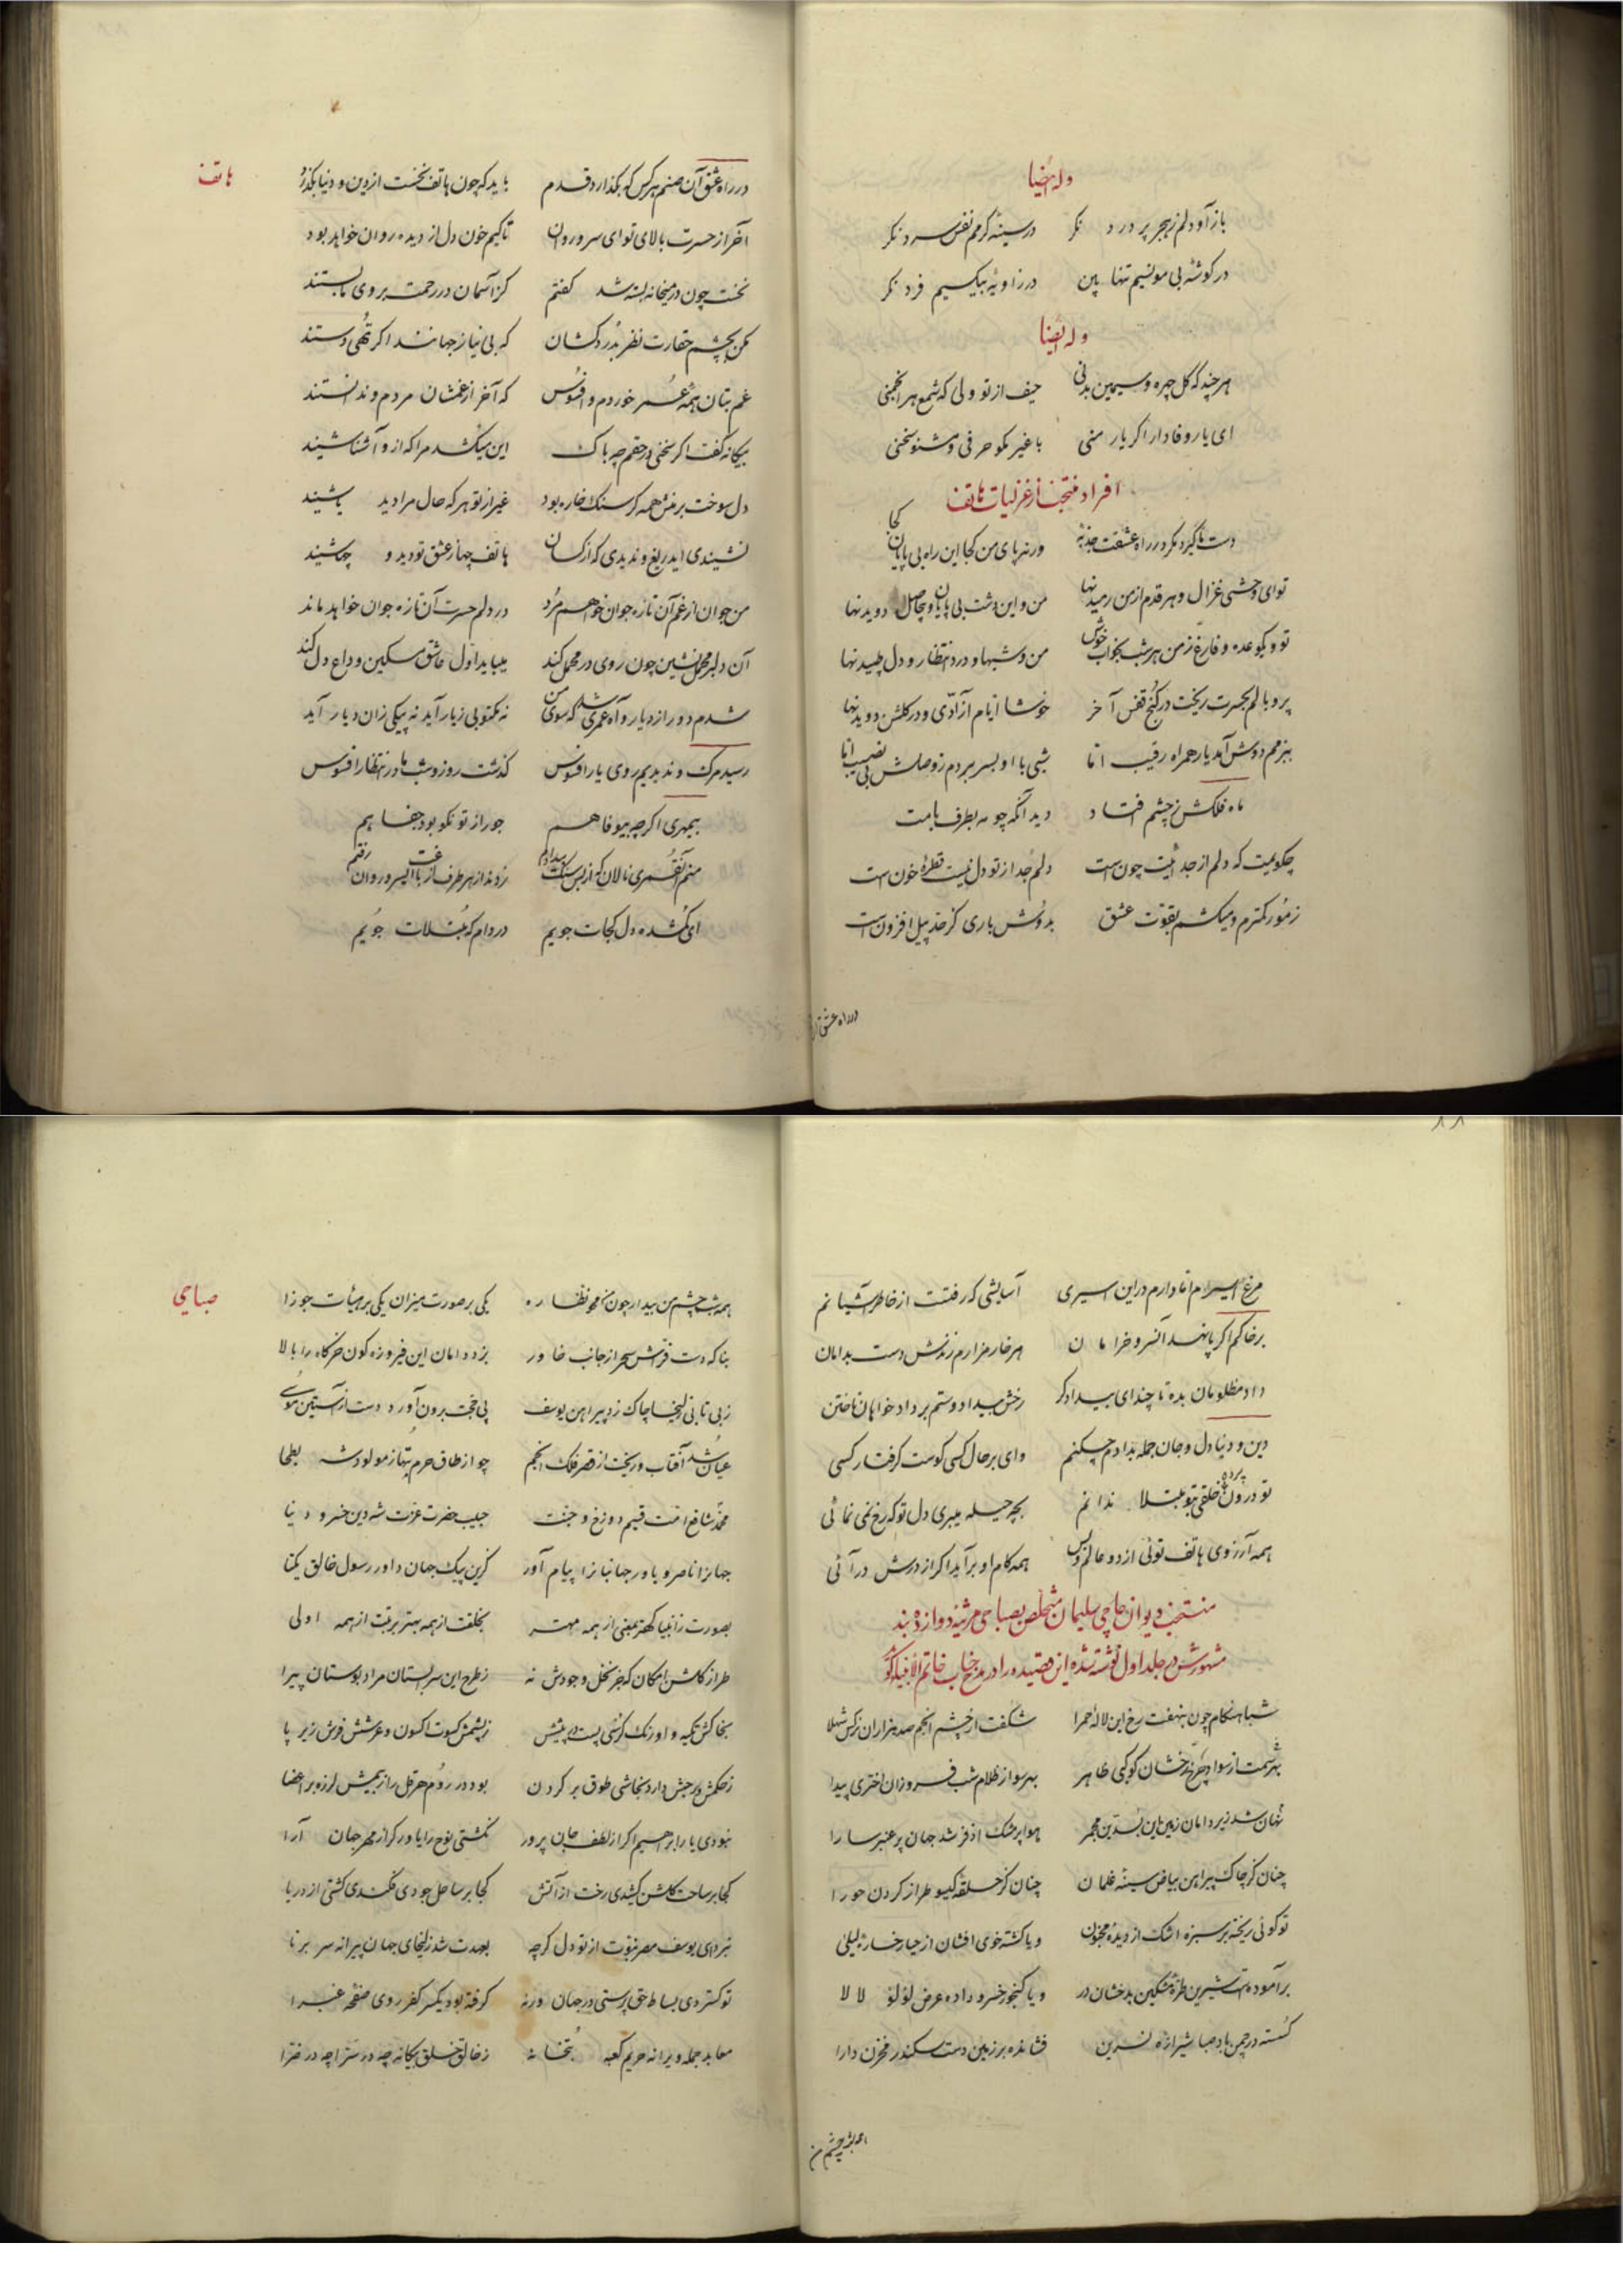 وله ایضا
باز آ و دلم ز هجر پر درد نکر در سینهٔ کرمم نفس سرد نکر
در کوشهٔ بی مونسیم تنها بین در زاویهٔ بیکسیم فرد نکر
وله ایضا
هر چند که کل چهره و سیمین بدنی حیف از تو ولی که شمع هر انجمنی
ای یار وفادار اکر یار منی با غیر مکو حرفی و مشنو سخنی
افراد منتخب از غزلیات هاتف
دست ما کیرد مکر در راه عشقت جذبهٔ ورنه پای من کجا این راه بی پایان کجا
تو ای وحشی غزال و هر قدم از من رمیدنها من و این دشت بی پایان و بیحاصل دویدنها
تو و یکوعده و فارغ ز من هر شب بخواب خوش من و شبها و درد انتظار و دل طپیدنها
پر و بالم بحسرت ریخت در کنج قفس آخر خوشا ایام آزادی و در کلشن دویدنها
ببزمم دوش آمد یار همراه رقیب اما شبی با او بسر بردم ز وصلش بی نصیب اما
ماه فلکش ز چشم افتاد دید آنکه چو مه بطرف بامت
چکویمت که دلم از جدائیت چون است دلم جدا از تو دل نیست قطرهٔ خون است
ز مور کمترم و میکشم بقوت عشق بدوش باری کز حد پیل افزون است
در راه عشق آن
هاتف
در راه عشق آن صنم هر کس که بکذارد قدم باید که چون هاتف نخست از دین و دنیا بکذرد
آخر از حسرت بالای تو ای سرو روان تا کیم خون دل از دیده روان خواهد بود
نخست چون در میخانه بسته شد کفتم کز آسمان در رحمت بروی ما بستند
مکن بچشم حقارت نظر بدردکشان که بی نیاز جهانند اکر تهی دستند
غم بتان همه عمر خوردم و افسوس که آخر از غمشان مردم و ندانستند
بیکانه کفت اکر سخنی در حقم چه باک این میکشد مرا که ازو آشنا شنید
دل سوخت بر منش همه کر سنک خاره بود غیر از تو هر که حال مرا دید یا شنید
نشنیدی ای دریغ و ندیدی که از کسان هاتف چها ز عشق تو دید و چه شنید
من جوان از غم آن تازه جوان خواهم مرد در دلم حسرت آن تازه جوان خواهد ماند
آن دلبر محمل نشین چون روی در محمل کند میباید اول عاشق مسکین وداع دل کند
شدم دور از دیار و آه عمری شد که سوی من نه مکتوبی ز یار آید نه پیکی زان دیار آید
رسید مرک و ندیدیم روی یار افسوس کذشت روز و شب ما در انتظار افسوس
بیمهری اکر چه بیوفا هم جور از تو نکو بود جفا هم
منم آن قمری نالان که از بس سنک بیدادم زدند از هر طرف از باغت ای سرو روان رفتم
ای کمشده دل کجات جویم در دام که مبتلات جویم
مرغ اسیرم اما دارم در این اسیری آسایشی که رفتست از خاطر آشیانم
بر خاکم اکر پا نهد آن سرو خرامان هر خار مزارم زندش دست بدامان
داد مظلومان بده تا چند ای بیدادکر رخش بیداد و ستم بر دادخواهان تاختن
دین و دنیا دل و جان جمله بدادم چکنم وای بر حال کسی کوست کرفتار کسی
تو درون پرده خلقی بتو مبتلا ندانم بچه حیله میبری دل تو که رخ نمی نمائی
همه آرزوی هاتف توئی از دو عالم و بس همه کام او برآید اکر از درش درآئی
منتخب دیوان حاجی سلیمان متخلص بصباحی مرثیه دوازده بند
مشهورش در جلد اول نوشته شده این قصیده را در مدح جناب خاتم الانبیا کو
شباهنکام چون بنهفت رخ این لالهٔ حمرا شکفت از چشم انجم صد هزاران نرکس شهلا
بهر سمت از سواد چرخ رخشان کوکبی ظاهر بهر سو از ظلام شب فروزان اختری پیدا
نهان شد زیر دامان زمین این بسدین مجمر هوا پر مشک اذفر شد جهان پر عنبر سارا
چنان کز چاک پیراهن بیاض سینهٔ غلمان چنان کز حلقهٔ کیسو طراز کردن حورا
تو کوئی ریخته بر سبزه اشک از دیده مجنون و یا کشته خوی افشان از حیا رخساز لیلی
برآموده است شیرین طرهٔ مشکین بدخشان در و یا کنجور خسرو داده عرض لؤلؤ لالا
کسسته در چمن باد صبا شیرازهٔ نسرین فشانده بر زمین دست سکندر مخزن دارا
همه شب چشم من
صباحی
همه شب چشم من بیدار چون من محو نظاره یکی بر صورت میزان یکی بر هیأت جوزا
بناکه دست فراش سحر از جانب خاور بزد دامان این فیروزه کون خرکاه را بالا
ز بی تابی زلیخا چاک زد پیراهن یوسف پی حجت برون آورد دست از آستین موسی
عیان شد آفتاب و ریخت از قصر فلک انجم چو از طاق حرم بتها ز مولود شه بطحا
محمد شافع امت قسیم دوزخ و جنت حبیب حضرت عزت شه دین خسرو دنیا
جهانرا ناصر و یاور جهانبانرا پیام آور کزین پیک جهان داور رسول خالق یکتا
بصورت ز انبیا کهتر بمعنی از همه مهتر بخلقت از همه بهتر برتبت از همه اولی
طراز کلشن امکان که جز نخل وجودش نه ز طرح این سرابستان مراد بوستان پیرا
بخاکش تکیه و اورنک کرسی پست در پیشش ز پشمش کسوت اکسون و عرشش فرش زیر پا
ز حکمش در حبش دارد نجاشی طوق بر کردن بود در روم هرقل را ز بیمش لرزه بر اعضا
نبودی یار ابراهیم اکر از لطف جان پرور نکشتی نوح را یاور کر از مهر جهان آرا
کجا بر ساحت کلشن کشیدی رخت از آتش کجا بر ساحل جودی فکندی کشتی از دریا
نبرد ای یوسف مصر نبوت از تو دل کر چه بعهدت شد زلیخای جهان پیرانه سر برنا
تو کستردی بساط حق پرستی در جهان ورنه کرفته بود یکسر کفر روی صفحهٔ غبرا
معابد جمله ویرانه حریم کعبه بتخانه ز خالق خلق بیکانه چه در سرا چه در ضرا